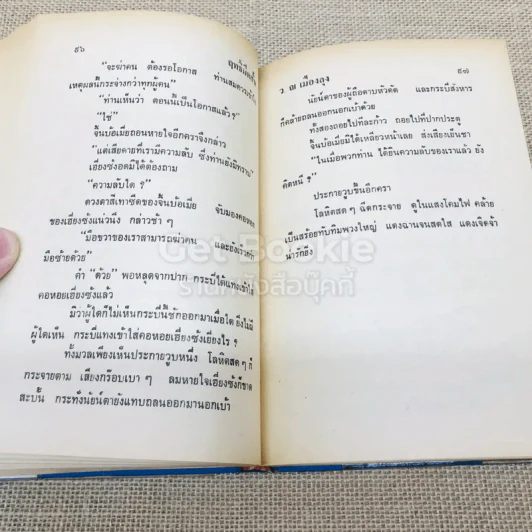 ๕๖
ฤทธิ์มีดสั้น
“จะฆ่าคน ต้องรอโอกาส ท่านสมควร
เหตุผลนี้กระจ่างกว่าทุกผู้คน”
“ท่านเห็นว่า ตอนนี้เป็นโอกาสแล้ว?”
“ใช่”
จิ้นบ้อเมี่ยถอนหายใจอีกคราจึงกล่าว
“แต่เสียดายที่เรามีความลับ ซึ่งท่านยังมิทราบ”
เฮี้ยงซังอดมิได้ต้องถาม
“ความลับใด?”
ดวงตาสีเทาซีดของจิ้นบ้อเมี่ย จับมองคอหอย
ของเฮี้ยงซังแน่วนิ่ง กล่าวช้าๆ
“มือขวาของเราสามารถฆ่าคน และยังเร็วกว่า
มือซ้ายด้วย”
คำ “ด้วย” พอหลุดจากปาก กระบี่ได้แทงเข้าใส่
คอหอยเฮี้ยงซังแล้ว
มิว่าผู้ใดก็ไม่เห็นกระบี่นี้ชักออกมาเมื่อใด ยิ่งไม่มี
ผู้ใดเห็น กระบี่แทงเข้าใส่คอหอยเฮี้ยงซังเยี่ยงไร?
ทั้งมวลเพียงเห็นประกายวูบหนึ่ง โลหิตสดๆ ก็
กระจายตาม เสียงกร๊อบเบาๆ ลมหายใจเฮี้ยงซังก็ขาด
สะบั้น กระทั่งนัยน์ตายังแทบถลนออกมานอกเบ้า
ว. ณ เมืองลุง
๕๗
นัยน์ตาของผู้ถือดาบหัวตัด และกระบี่สังหาร
ก็คล้ายถลนออกนอกเบ้าด้วย
ทั้งสองถอยไปทีละก้าว ถอยไปที่ปากประตู
จิ้นบ้อเมี่ยมิได้เหลียวหน้าเลย ส่งเสียงเย็นชา
“ในเมื่อพวกท่าน ได้ยินความลับของเราแล้ว ยัง
คิดหนี?”
ประกายวูบขึ้นอีกครา
โลหิตสดๆ ฉีดกระจาย ดูในแสงโคมไฟ คล้าย
เป็นสร้อยทับทิมพวงใหญ่ แดงฉานจนสดใส แดงเจิดจ้า
น่ารักยิ่ง
Get Bookie
ร้านหนังสือบุ๊คกี้